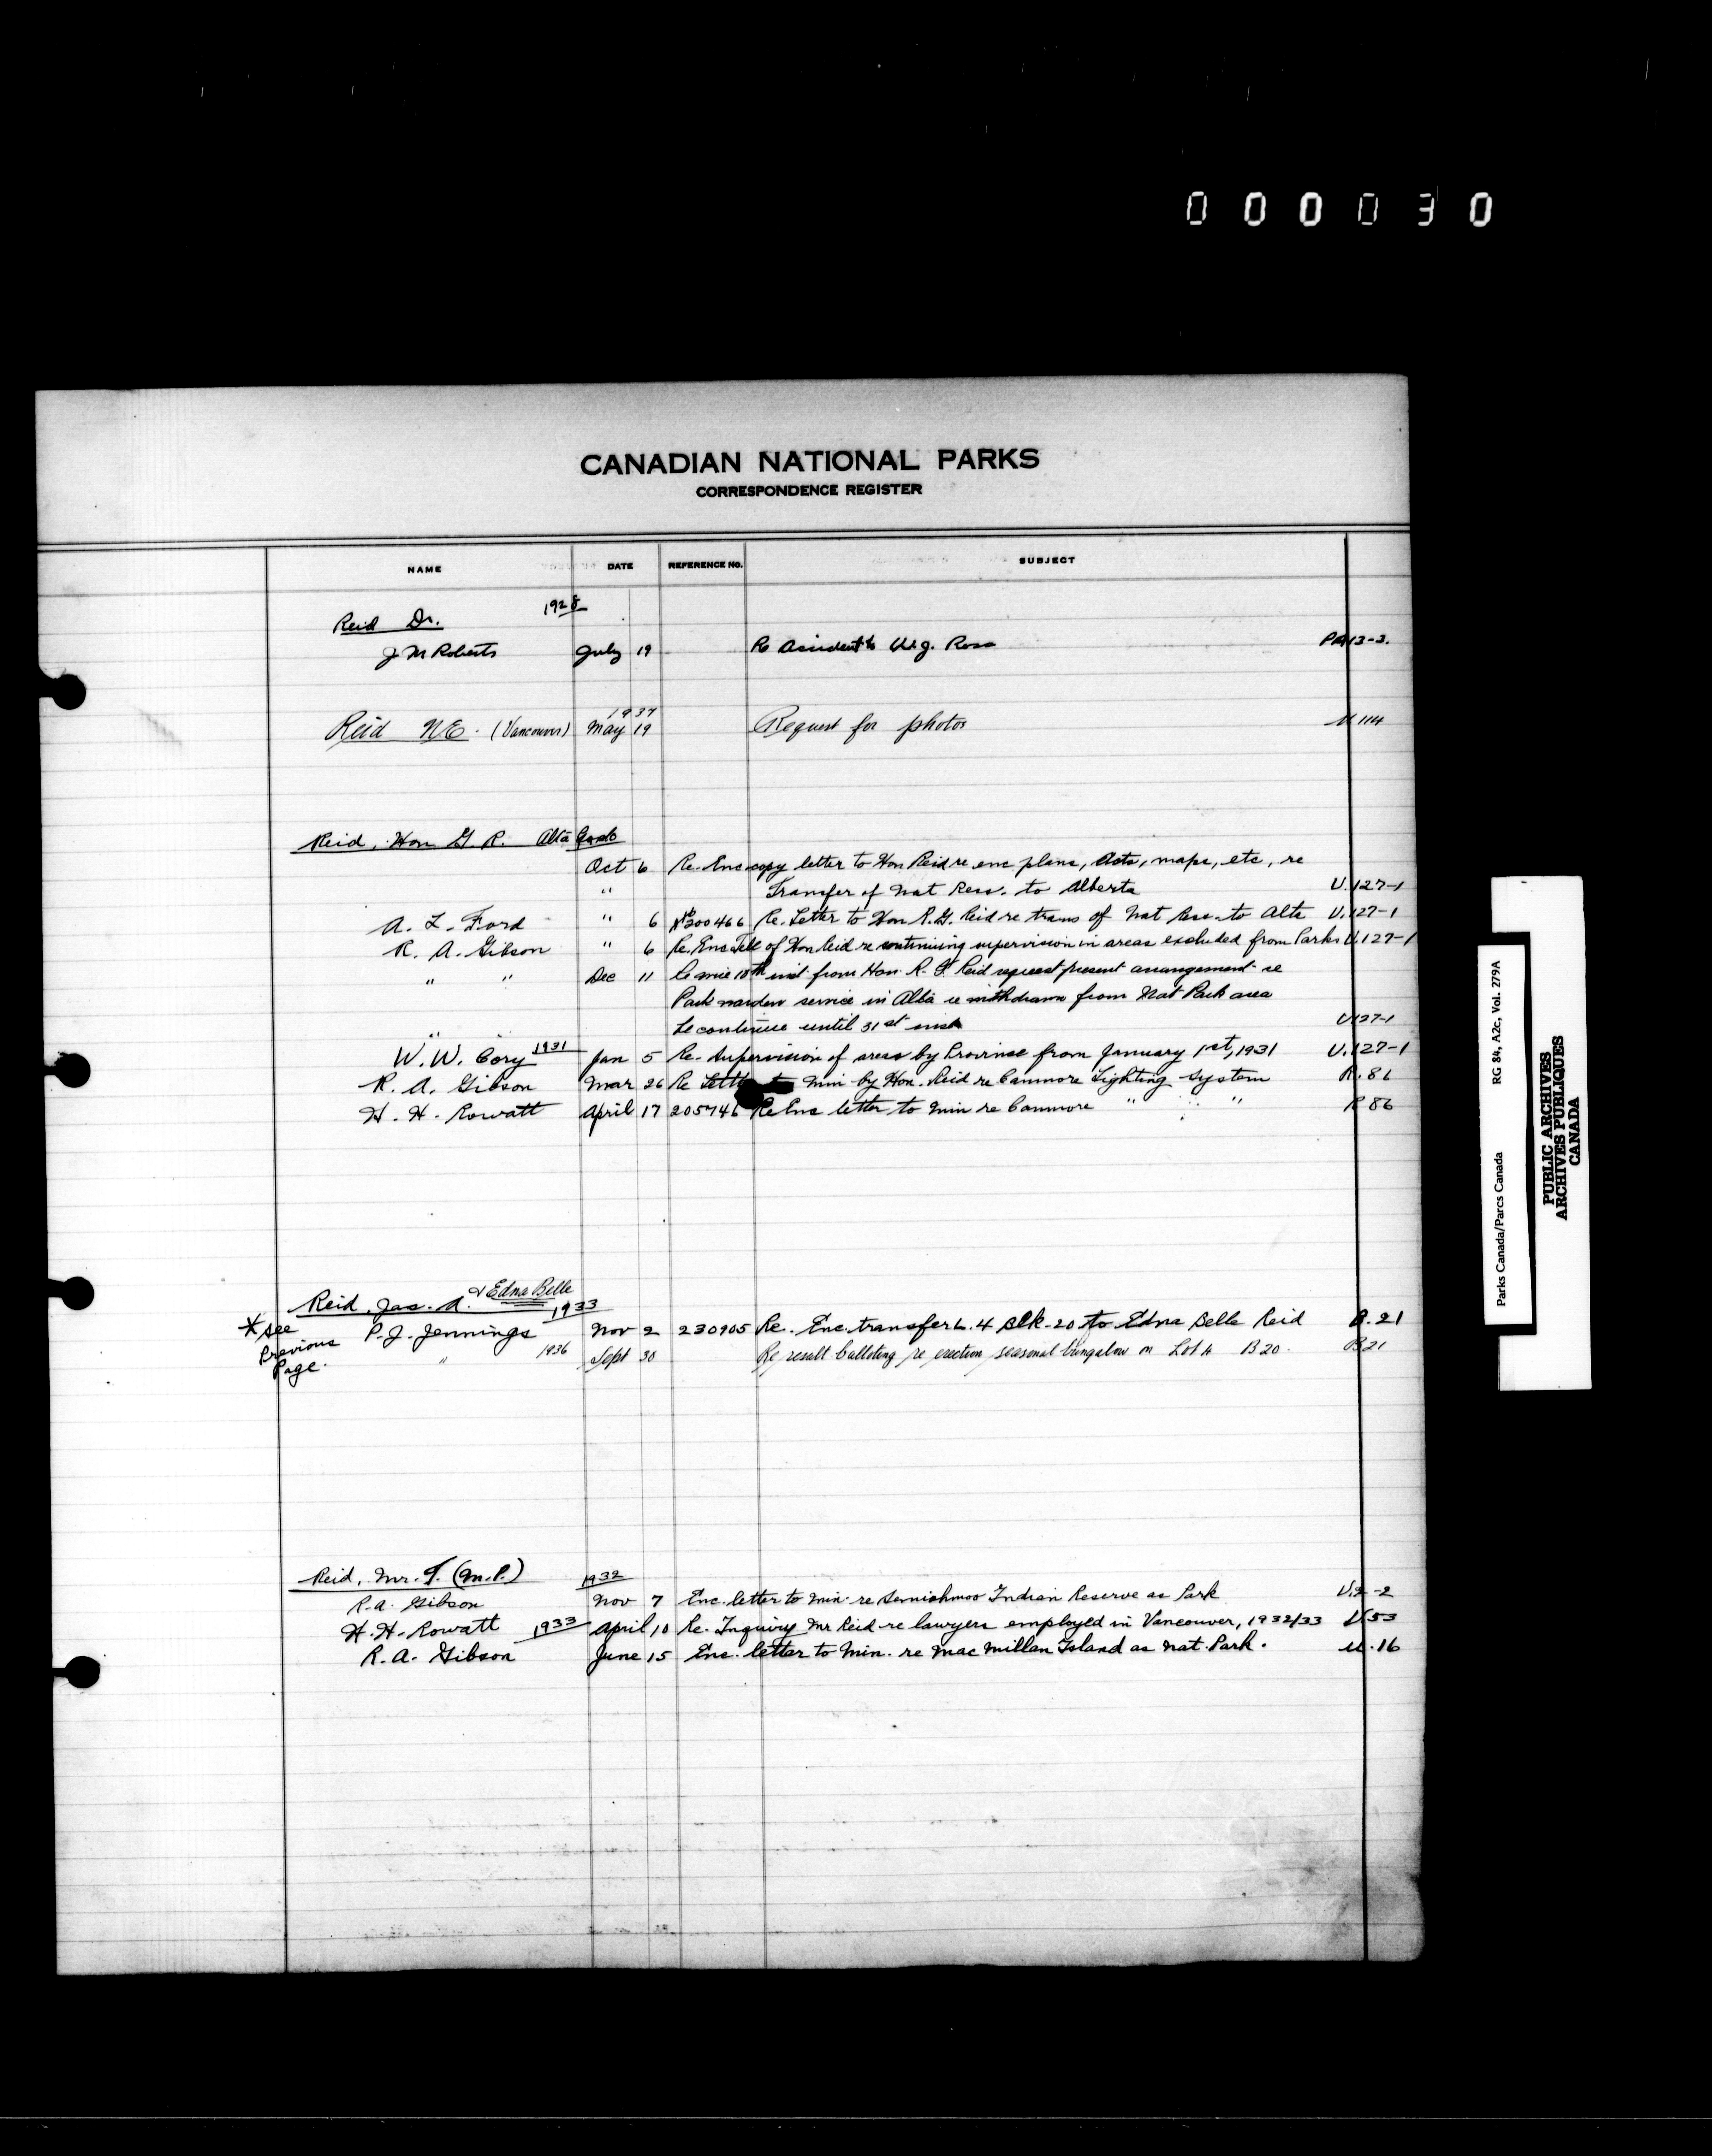 000030
CANADIAN NATIONAL PARKS
CORRESPONDENCE REGISTER
NAME DATE REFERENCE NO. SUBJECT
Reid Dr. 1928
J M Roberts July 19 Re Accident to W. J. Ross PA13-3.
1937
Reid N E. (Vancouver) May 19 Request for photos U 114
Reid, Hon G. R. Alta
Oct 6 Re. Enc copy letter to Hon Reid re enc plans, Acts, maps, etc, re
" Transfer of Nat Res. to Alberta U.127-1
A. L. Ford " 6 200466 Re. Letter to Hon R.G. Reid re trans of Nat Res. to Alta U.127-1
R. A. Gibson " 6 Re. Enc Tel of Hon Reid re continuing supervision in areas excluded from Parks U.127-1
" " Dec 11 Re wire 10th inst from Hon. R. G. Reid request present arrangement re
Park warden service in Alba re withdrawn from Nat Park area
be continue until 31st inst U127-1
"
W. W. Cory 1931 Jan 5 Re. Supervision of areas by Province from January 1st, 1931 U.127-1
R. A. Gibson Mar 26 Re Letter to Min by Hon. Reid re Canmore Lighting System R.86
H. H. Rowatt April 17 205746 Re Enc letter to Min re Canmore " " R 86
Reid, Jas. A. & Edna Belle
1933
* See Previous Page.
P. J. Jennings Nov 2 230905 Re. Enc. transfer L. 4 Blk-20 to Edna Belle Reid B.21
" 1936 Sept 30 Re result balloting re erection seasonal bungalow on Lot 4 B 20. B21
Reid, Mr. T. (M.P.) 1932
R.A. Gibson Nov 7 Enc. letter to Min. re Semiahmoo Indian Reserve as Park U.2-2
H. H. Rowatt 1933 April 10 Re. Inquiry Mr Reid re lawyers employed in Vancouver, 1932/33 U.53
R. A. Gibson June 15 Enc. letter to Min. re Mac Millan Island as Nat. Park. U.16
Parks Canada/Parcs Canada RG 84, A2c, Vol. 279A
PUBLIC ARCHIVES
ARCHIVES PUBLIQUES
CANADA